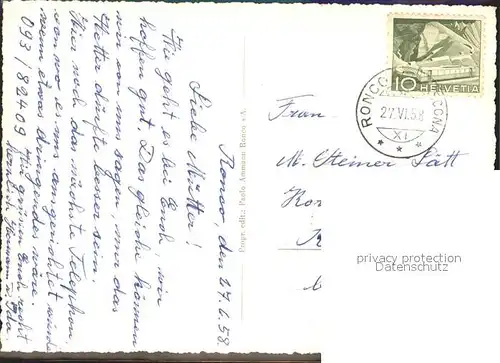 Ronco, den 27.6.58.
Liebe Mutter!
Wie geht es bei Euch, wir
hoffen gut. Das gleiche können
wir von uns sagen, nur das
Wetter dürfte besser sein.
Hier noch das nächste Telephon,
wo es uns ausgerichtet würde
wenn etwas dringendes wäre.
093 / 82409 Wir grüssen Euch recht
herzlich
Propr. edit. Paolo Ammann Ronco s.A.
10 HELVETIA
RONCO
27.VI.58
XI
Frau
M. Steiner
privacy protection
Datenschutz